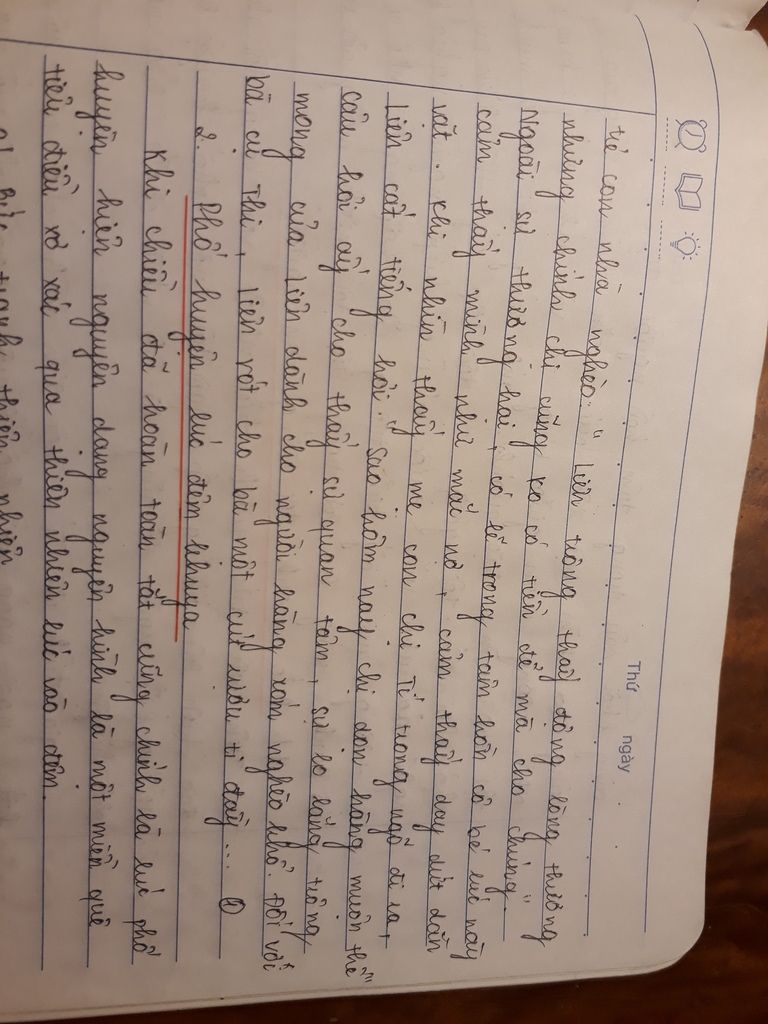 Thứ ngày
trẻ con nhà nghèo: "Liên trông thấy động lòng thương
nhưng chính chị cũng ko có tiền để mà cho chúng".
Ngoài sự thương hại, có lẽ trong tâm hồn cô bé lúc này
cảm thấy mình như mắc nợ, cảm thấy day dứt dằn
vặt. Khi nhìn thấy mẹ con chị Tí trong ngõ đi ra,
Liên cất tiếng hỏi: "Sao hôm nay chị dọn hàng muộn thế"
câu hỏi ấy cho thấy sự quan tâm, sự lo lắng trông
mong của Liên dành cho người hàng xóm nghèo khổ. Đối với
bà cụ Thi, Liên rót cho bà một cút rượu ti đầy...
2. Phố huyện lúc đêm khuya
Khi chiều đã hoàn toàn tắt cũng chính là lúc phố
huyện hiện nguyên dạng nguyên hình là một miền quê
tiêu điều xơ xác qua thiên nhiên lúc vào đêm.
Bức tranh thiên nhiên